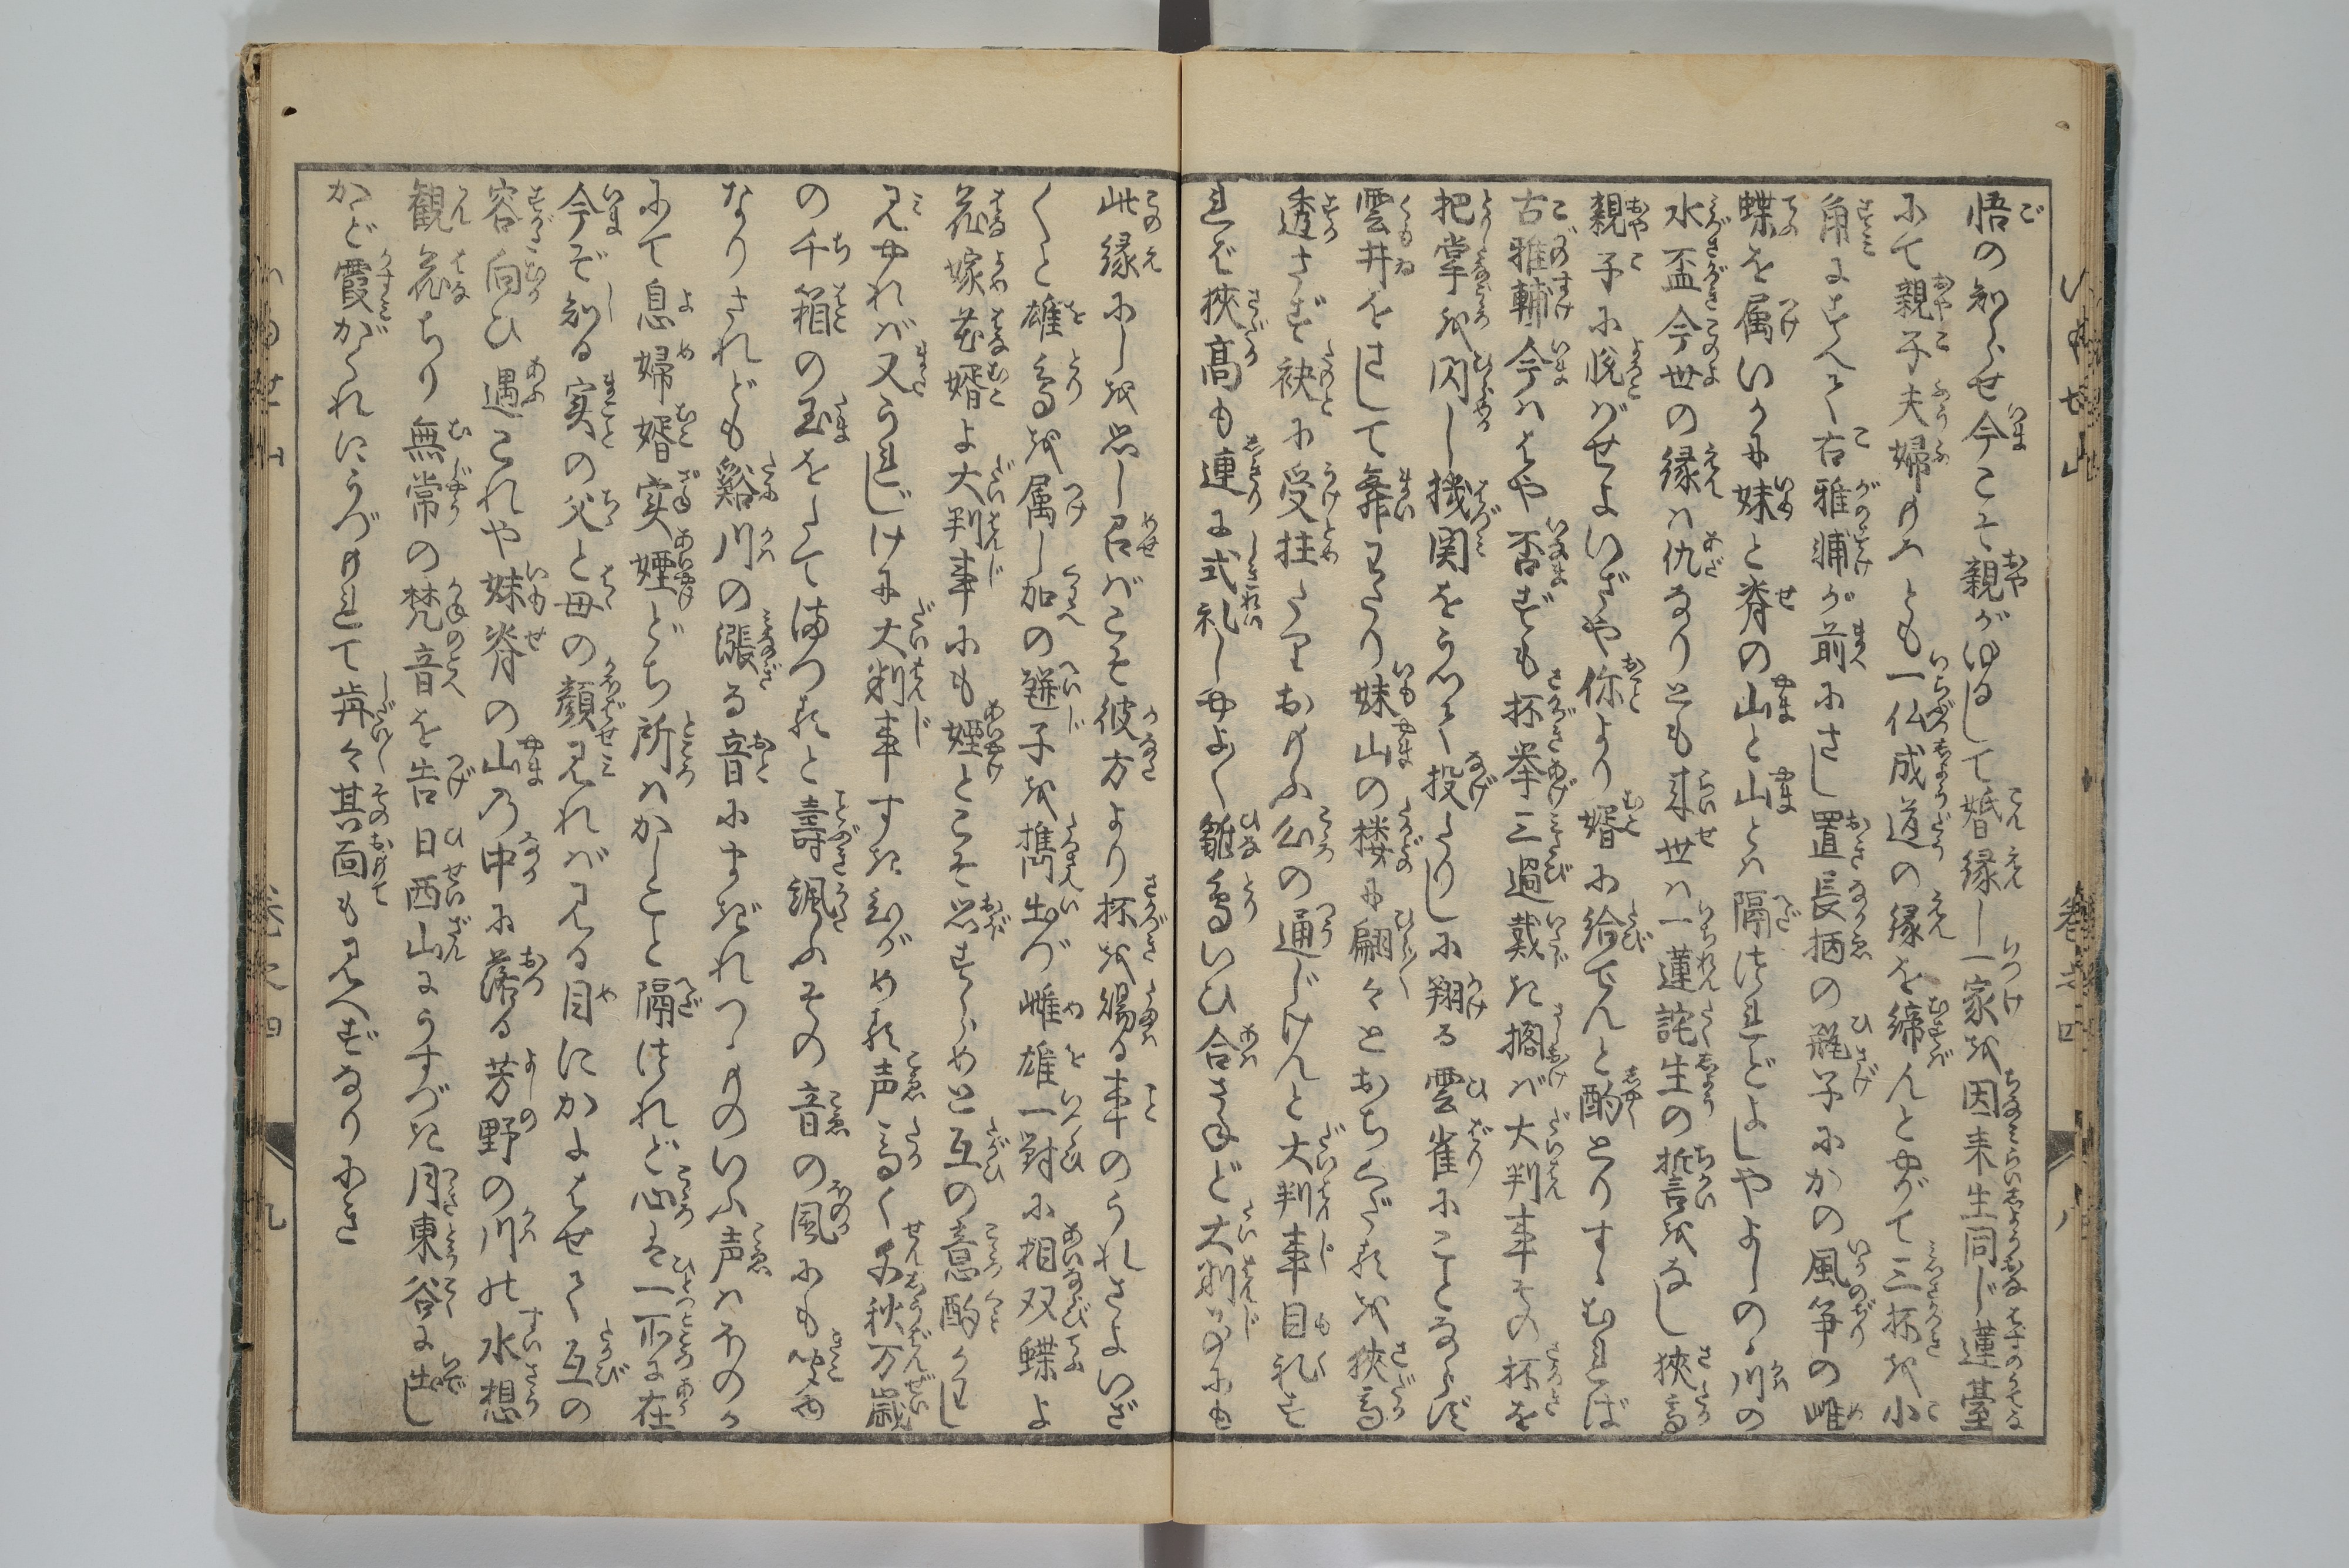 悟の知らせ今こそ親がゆるして婚縁し一家を因未来生同じ蓮台
にて親子夫婦のみとも一仏成道の縁を締んとやがて三杯を小
角にすへて古雅輔が前にさし置長柄の銚子にかの風箏の雌
蝶を属いかに妹と脊の山と山とは隔つれどよしやよしのゝ川の
水盃今世の縁は仇なりとも来世は一蓮詫生の誓をなし狭高
親子に悦ばせよいざや你より婿に給てんと酌とりすゝむれば
古雅輔今はもや否ずも杯挙三過戴き擱ば大判事その杯を
把掌を閃し機関をうつて投たりしに翔る雲雀にことならず
雲井をさして舞わたり妹山の楼に翩々とおちくだるを狭高
透さず袂に受拄たりおのが心の通じけんと大判事目礼す
れば狭高も連に式礼しやよく雛鳥いひ合さねど大判事のにも
此縁にしを思し召ばこそ彼方より杯を賜る事のうれさよいざ
くと雄鳥を属し加の瓶子を携出づ雌雄一対に相双蝶よ
花嫁花婿よ大判事にも姪とこそ思すらめと互の意酌かはし
見やれば又うれしげに大判事すき歪がめる声高く千秋万歳
の千箱の玉をたてまつると寿諷ふその音の風にも聞や
なりされども谿川の漲る音にまぎれつゝものいふ声はほのか
にて息婦婿実姪どち所はかしこと隔つれど心は一所に在
今ぞ知る実の父と母の顔見れば見る目にかよはせて互の
容向ひ遇これや妹脊の山の中に落る芳野の川の水想
観花ちり無常の梵音を告日西山にうすづき月東谷に出し
かど霞がくれにうづもれて再々其面も見へずなりにき